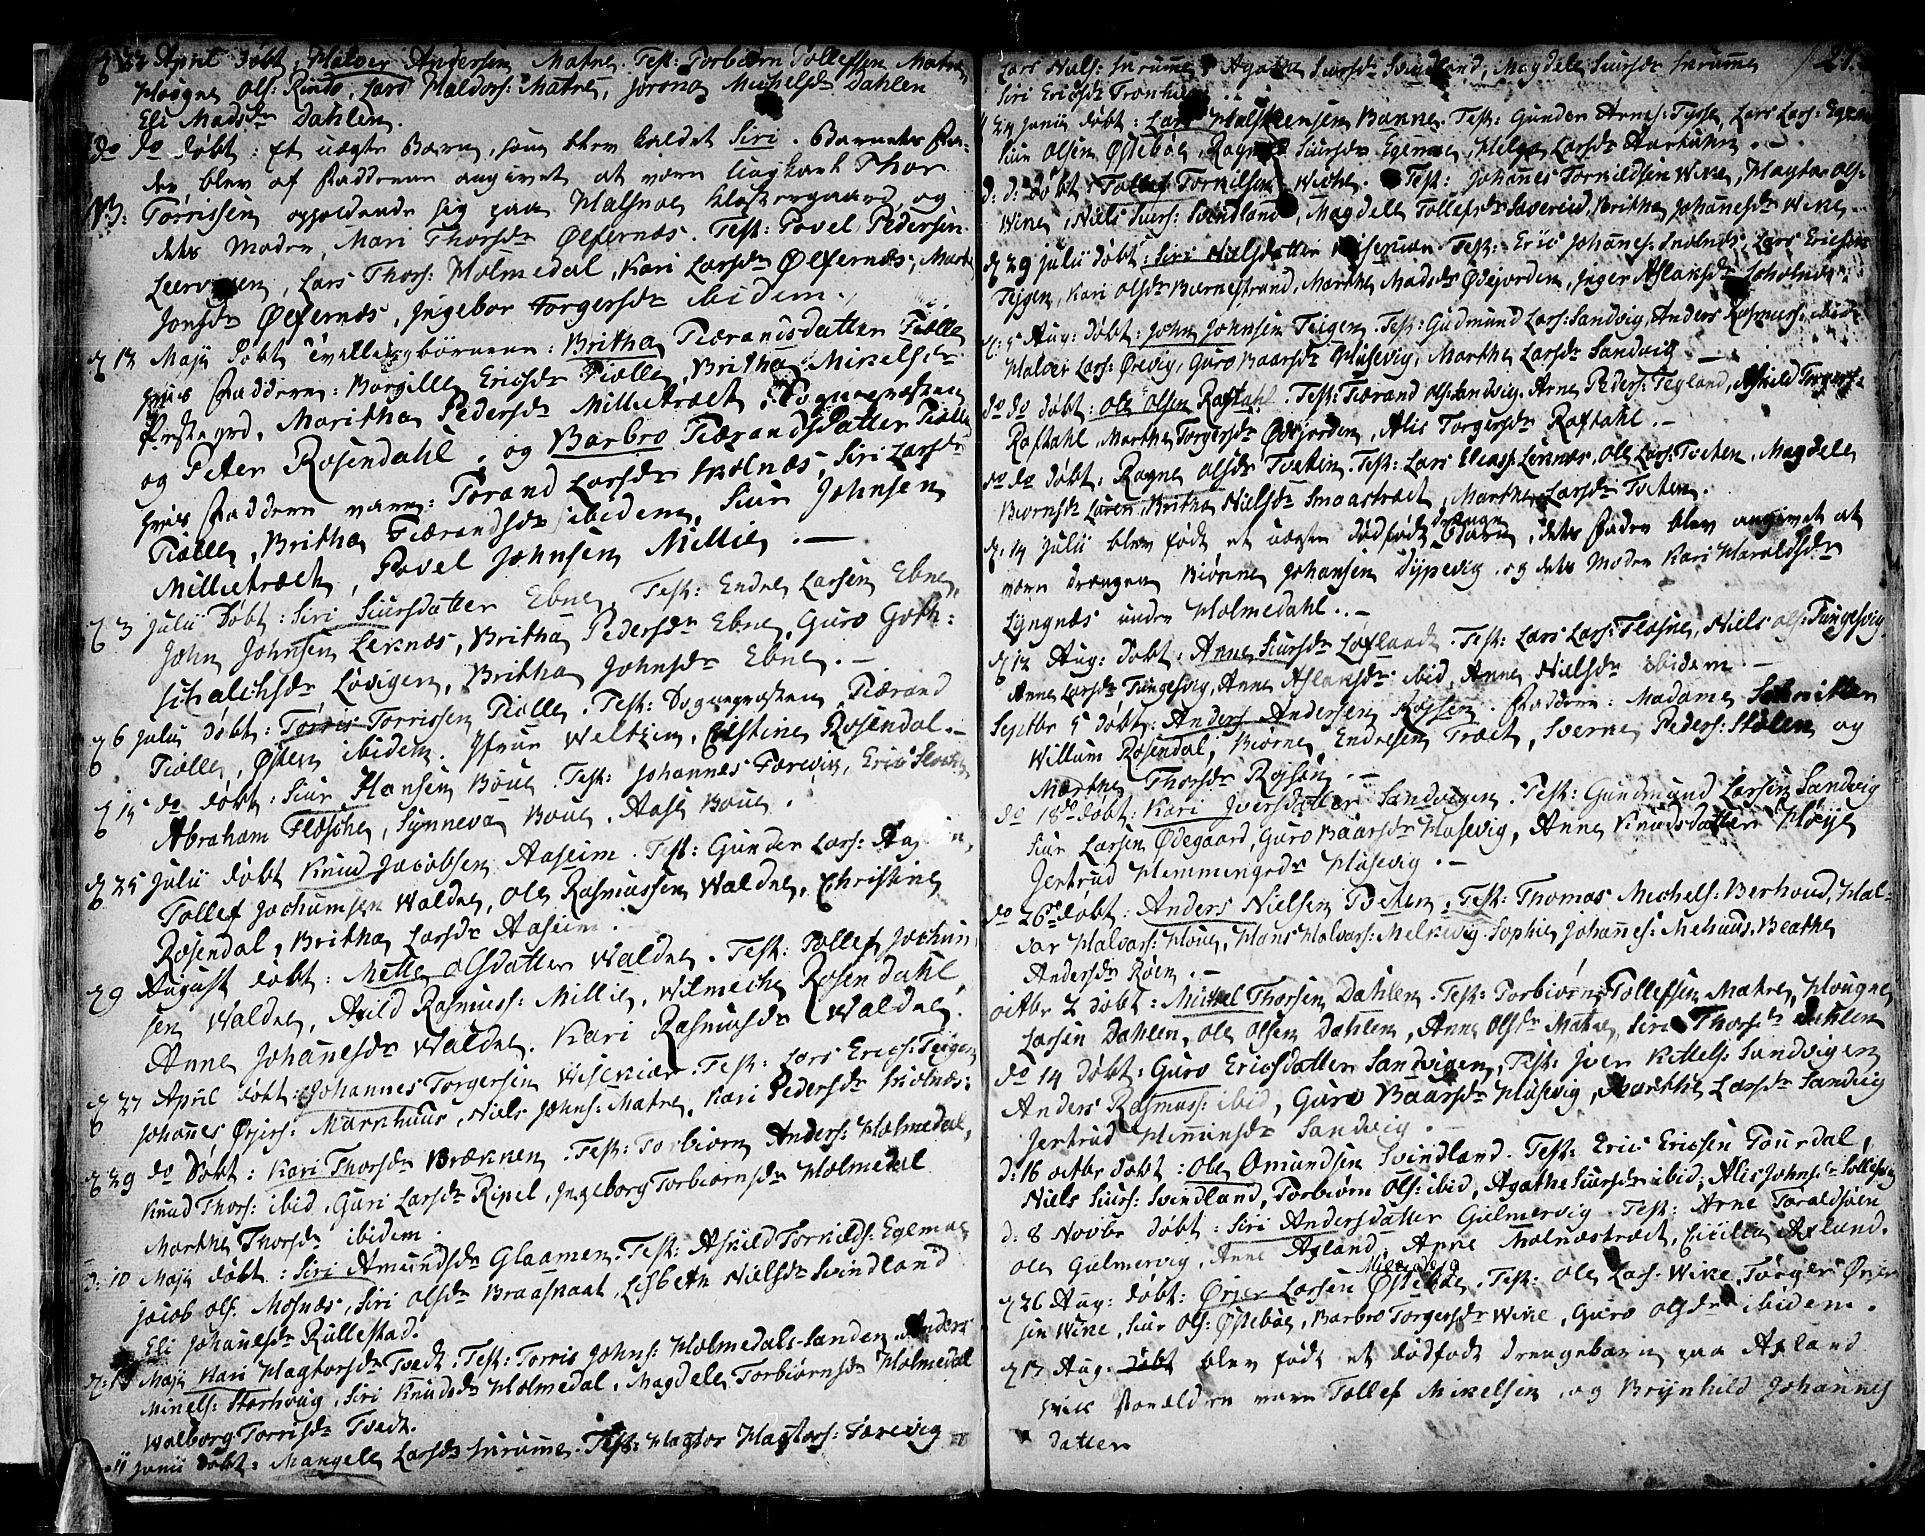 22 April døbt: Halvor Andersen Matre. Test: Torbiørn Tollefsen Matre
Hougne Ols: Rinde, Lars Haldors: Matre, Jorona Michelsdr Dahlen
Eli Madsdr Dahlen.
do do døbt: Et uægte Barn, som blev kaldet Siri. Barnets Fa-
der blev af Faddrene angivet at være Ungkarl Thor
NB: Torrissen opholdende sig paa Halsnøe Klostergaard, og
dets Moder, Mari Thorsdr Ølfernæs. Test: Povel Pedersen
Leervigen, Lars Thors: Holmedal, Kari Larsdr Ølfernæs, Marte
Jonsdr Ølfernæs, Ingebor Torgersdr ibidem.
d 12 Maji døbt Tvillingbørnene: Britha Tiærandsdatter Tiølle
hvis Faddere: Borgille Ericsdr Tiølle, Britha Mikelsdr
Prstegrd, Maritha Pedersdr Millietræet, Sognepræsten
og Peter Rosendahl, og Barbro Tiærandsdatter Tiølle
hvis Faddere vare: Torand Larsdr Skolnæs, Siri Larsdr
Tiølle, Britha Tiærandsdr ibidem, Siur Johnsen
Millietræet, Povel Johnsen Millie.
d 3 Julii døbt: Siri Siursdatter Ebne. Test: Endre Larsen Ebne,
John Johnsen Leknæs, Britha Pedersdr Ebne, Guro Goth-
schalchsdr Løvigen, Britha Johnsdr Ebne.
d 6 Julii døbt: Torris Torrissen Tiølle. Test: Sognepræsten, Tiærand
Tiølle, Østen ibidem. Jfrue Weltzin, Cristine Rosendal.
d 15 do døbt: Siur Hansen Boue. Test: Johannes Færevig, Eric
Abraham Flæsche, Synneva Boue, Aase Boue.
d 25 Julii døbt Knud Jacobsen Aaseim. Test: Gunder Lars: Aaseim,
Tollef Jochumsen Waldre, Ole Rasmussen Waldre, Christine
Rosendal, Britha Larsdr Aaseim.
d 9 August døbt: Mette Olsdatter Waldre. Test: Tollef Jochum
sen Waldre, Axild Rasmuss: Millie, Wilmeche Rosendahl,
Anne Johannesdr Waldre. Kari Rasmusdr Waldre.
d 27 April døbt: Johannes Torgersen Wiskiær. Test: Lars Erics: Teigen
Johannes Ørjers: Markhuus, Niels Johns: Matre, Kari Pedersdr Skolnæs:
d 29 do døbt: Kari Thorsdr Brækken. Test: Torbiørn Anders: Holmedal,
Knud Thors: ibid, Guri Larsdr Ripel, Ingeborg Torbiørnsdr Holmedal
Marthe Thorsdr ibidem.
d: 10 Maji døbt: Siri Amundsdr Glaamen. Test: Askild Torkilds: Egemoe
Jacob Ols: Mosnæs, Siri Olsdr Braatnaat, Lisbeth Nielsdr Svindland
Eli Johannesdr Rullestad.
d: 13 Maji Kari Hagtorsdr Tvedt. Test: Torris Johns: Holmedals-Sanden, Anders
Mikels: Storhoug, Siri Knudsdr Holmedal, Magdele Torbiørnsdr Holmedal
Walborg Torrisdr Tvedt.
11 Junii døbt: Mangele Larsdr Skrumme. Test: Hagtor Hagtors: Færevig
Lars Niels: Skrumme, Agatha Siursdr Svindland, Magdele Siursdr Skrumme 1273
Siri Ericsdr
24 Junii døbt: Lars Halstensen Bunne. Test: Gunder Arnes: Tysse, Lars Lars: Egemoe
Siur Olsen Østebøe, Ragna Siursdr Egemoe, Helga Larsdr
d: d: døbt: Tollef Torkilsen Wiche. Test: Johannes Torkildsen Wike, Hagtor Ols:
Wike, Niels Siurs: Svindland, Magdele Tollefsdr Saevereid, Britha Johannesdr Wike.
d 29 Julii døbt: Siri Nielsdatter Test: Eric Johannes: Skolnæs, Lars Ericsen
Teigen, Kari Olsdr Biørnestrand, Marthe Madsdr Ødejorden, Inger Aslaksdr Skolnæs.
d: 5 Aug: døbt: John Johnsen Teigen. Test: Gudmund Lars: Sandvig, Anders Rasmuss: ibid
Halvor Lars: Ørevig, Guro Baarsdr Husevig, Marthe Larsdr Sandvig
do do døbt: Ole Olsen Raftahl. Test: Tiærand Ols: Sandvig, Arne Peders: Tegland, Askild Torgers:
Raftahl, Marthe Torgersdr Ødejorden, Alis Torgersdr Raftahl.
do do døbt: Ragne Olsdr Tveten. Test: Lars Elias: Leknæs, Ole Lars: Tveten, Magdele
Biørnsdr Løren, Britha Nielsdr Smaatræet, Marthe Larsdr Tveten.
d: 14 Julii blev født et uægte dødfødt drenge Barn, dets Fader blev angivet at
være drengen Biørne Johansen Dypevig og dets Moder Kari Haraldsdr
Lyngnæs under Holmedahl.
d 12 Aug: døbt: Anne Siursdr Løflaadt. Test: Lars Lars: Flæsne, Niels Ols: Tungesvig
Anne Larsdr Tungesvig, Anne Aslaksdr ibid, Anne Nielsdr ibidem.
Septbr 5 døbt: Anders Andersen Røssen. Faddere: Madame Schnitler
Willum Rosendal, Biørne Endresen Træet, Sverne Peders: Stølen og
Marthe Thorsdr Røsen.
do 18de døbt: Kari Iversdatter Sandvigen. Test: Gundmund Larsen Sandvig
Siur Larsen Ødegaard, Guro Baarsdr Husevig, Anne Knudsdatter Høyje
Jertrud Hemmingsdr Husevig.
do 26de døbt: Anders Nielsen Bækken. Test: Thomas Michels: Berhoud, Hal-
vor Halvors: Houe, Hans Halvors: Melkevig, Sophie Johannes: Mehuus, Beathe
Andersdr Røen.
octbr 2 døbt: Mickel Thorsen Dahlen. Test: Torbiørn Tollefsen Matre, Hougne
Larsen Dahlen, Ole Olsen Dahlen, Anne Olsdr Matre, Siri Thorsdr Dahlen
do 14 døbt: Guro Ericsdatter Sandvigen, Test: Iver Kittels: Sandvigen
Anders Rasmuss: ibid, Guro Baarsdr Husevig, Marthe Larsdr Sandvig
Jertrud Hemminsdr Sandvig.
d: 16 octbr døbt: Ole Omundsen Svindland. Test: Eric Ericsen Fourdal,
Niels Siurs: Svindland, Torbiørn Ols: ibid, Agathe Siursdr ibid, Alis Johnsdr Tollesvig
d: 8 Novbr døbt: Siri Andersdatter Gielmervig. Test: Arne Taraldsøen
Ole Gielmervig, Anne Axland, Anne Skolnæstræet, Cicilia Axland.
d 26 Aug: døbt: Ørjer Larsen Østebøe. Test: Ole Lars: Wike, Torger Ørjer
sen Wike, Siur Ols: Østebøe, Barbro Torgersdr Wike, Guro Olsdr ibidem.
d 17 Aug: døbt blev født et dødfødt drengebarn paa Axland
hvis Forældre vare Tollef Mikelsen og Brynhild Johannes
datter